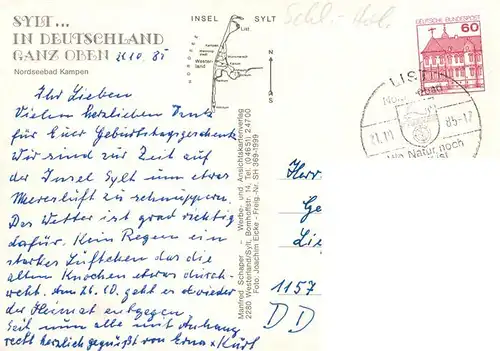 SYLT...
IN DEUTSCHLAND
GANZ OBEN
Nordseebad Kampen
INSEL SYLT
List
Kampen
Westerland
N
S
Schl.-Hol.
DEUTSCHE BUNDESPOST
60
LIST
21.10.85-17
Natur noch
Ihr Lieben
Vielen herzlichen Dank
für Euer Geburtstagsgeschenk
Wir sind zur Zeit auf
der Insel Sylt um etwas
Meeresluft zu schnuppern.
Das Wetter ist grad richtig
dafür. Kein Regen ein
starkes Lüftchen das die
alten Knochen etwas durch-
weht. Am 26.10. geht es wieder
der Heimat entgegen
Seid nun alle mit Anhang
recht herzlich gegrüßt von Erna + Kurt
Manfred Schaper - Werbe- und Ansichtskartenverlag
2280 Westerland/Sylt, Bomhoffstr. 14, Tel. (04651) 2 47 00
Foto: Joachim Eicke - Freig.-Nr. SH 369-1999
Herr
Ge
Lie
1157
DD